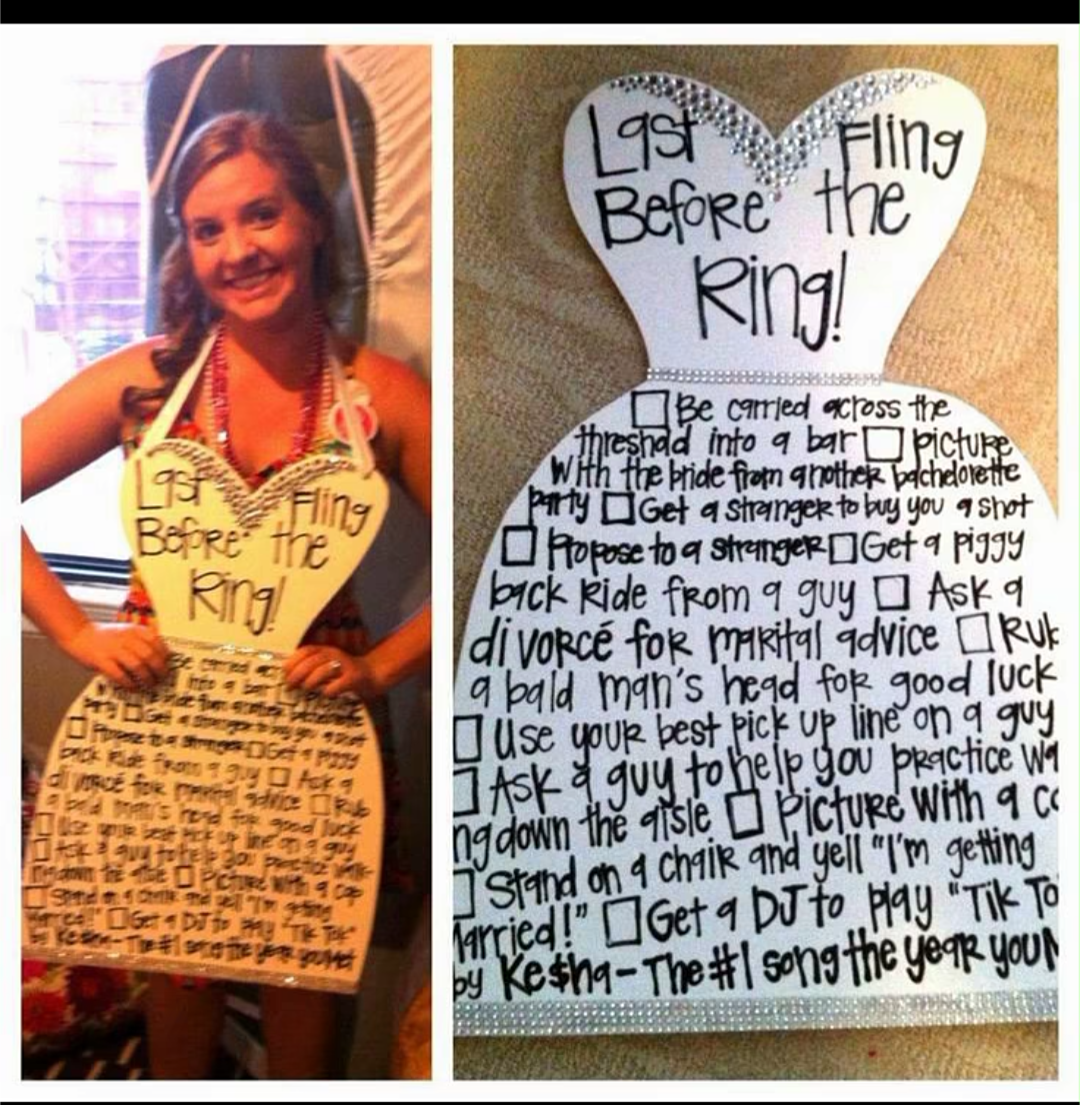 Last Fling
Before the
Ring!
Be carried
into a bar picture
with the bride from another bachelorette
party Get a stranger to buy you a shot
Propose to a stranger Get a piggy
back Ride from a guy Ask a
divorcé for marital advice Rub
a bald man's head for good luck
Use your best pick up line on a guy
Ask a guy to help you practice walk-
ing down the aisle Picture with a cop
Stand on a chair and yell "I'm getting
Married!" Get a DJ to play "Tik Tok"
by Ke$ha - The #1 song the year you Met
Last Fling
Before the
Ring!
Be carried across the
threshold into a bar picture
With the bride from another bachelorette
party Get a stranger to buy you a shot
Propose to a stranger Get a piggy
back Ride from a guy Ask a
divorcé for marital advice Rub
a bald man's head for good luck
Use your best pick up line on a guy
Ask a guy to help you practice Wa
ng down the aisle Picture With a co
Stand on a chair and yell "I'm getting
Married!" Get a DJ to play "Tik To
by Ke$ha - The #1 song the year you M